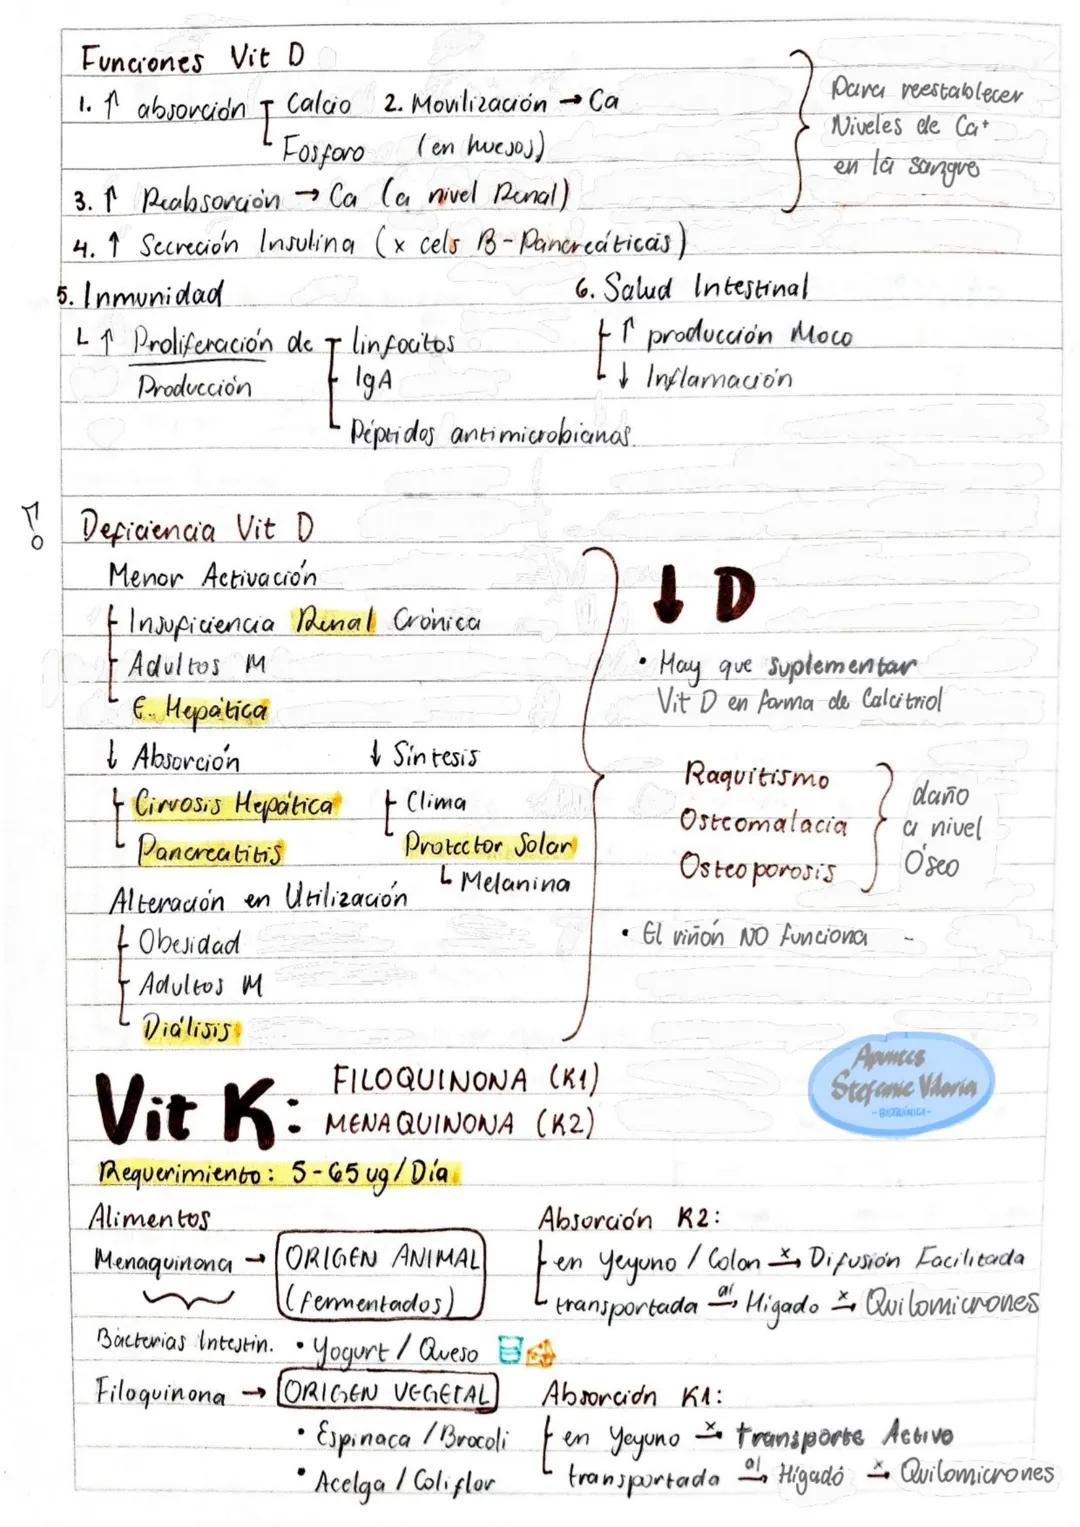 Funciones Vit D
1. ↑ absorción Calcio 2. Movilización → Ca
Fosforo (en huesos)
3. ↑ Reabsorción → Ca (a nivel Renal)
Para reestablecer
Niveles de Ca+
en la sangre
4. ↑ Secreción Insulina (x cels B-Pancreáticas)
5. Inmunidad
↑ Proliferación de linfocitos
Producción IgA
Péptidos antimicrobianos
6. Salud Intestinal
↑ producción Moco
↓ Inflamación
Deficiencia Vit D
Menor Activación
Insuficiencia Renal Crónica
Adultos M
E. Hepática
↓ Absorción
Cirrosis Hepática
Pancreatitis
↓ Síntesis
Clima
Protector Solar
Melanina
Alteración en Utilización
Obesidad
Adultos M
Diálisis
↓ D
• Hay que suplementar
Vit D en forma de Calcitriol
Raquitismo
Osteomalacia
Osteoporosis
daño
a nivel
Óseo
• El riñón NO funciona
Apuntes
Stefanie Viloria
-BIOQUÍMICA-
Vit K: FILOQUINONA (K1)
MENAQUINONA (K2)
Requerimiento: 5-65 ug/Día
Alimentos
Menaquinona → ORIGEN ANIMAL
(fermentados)
Bacterias Intestin. • Yogurt / Queso
Filoquinona → ORIGEN VEGETAL
• Espinaca / Brocoli
• Acelga / Coliflor
Absorción K2:
en Yeyuno / Colon x→ Difusión Facilitada
transportada al→ Hígado x→ Quilomicrones
Absorción K1:
en Yeyuno x→ Transporte Activo
transportada al→ Hígado x→ Quilomicrones